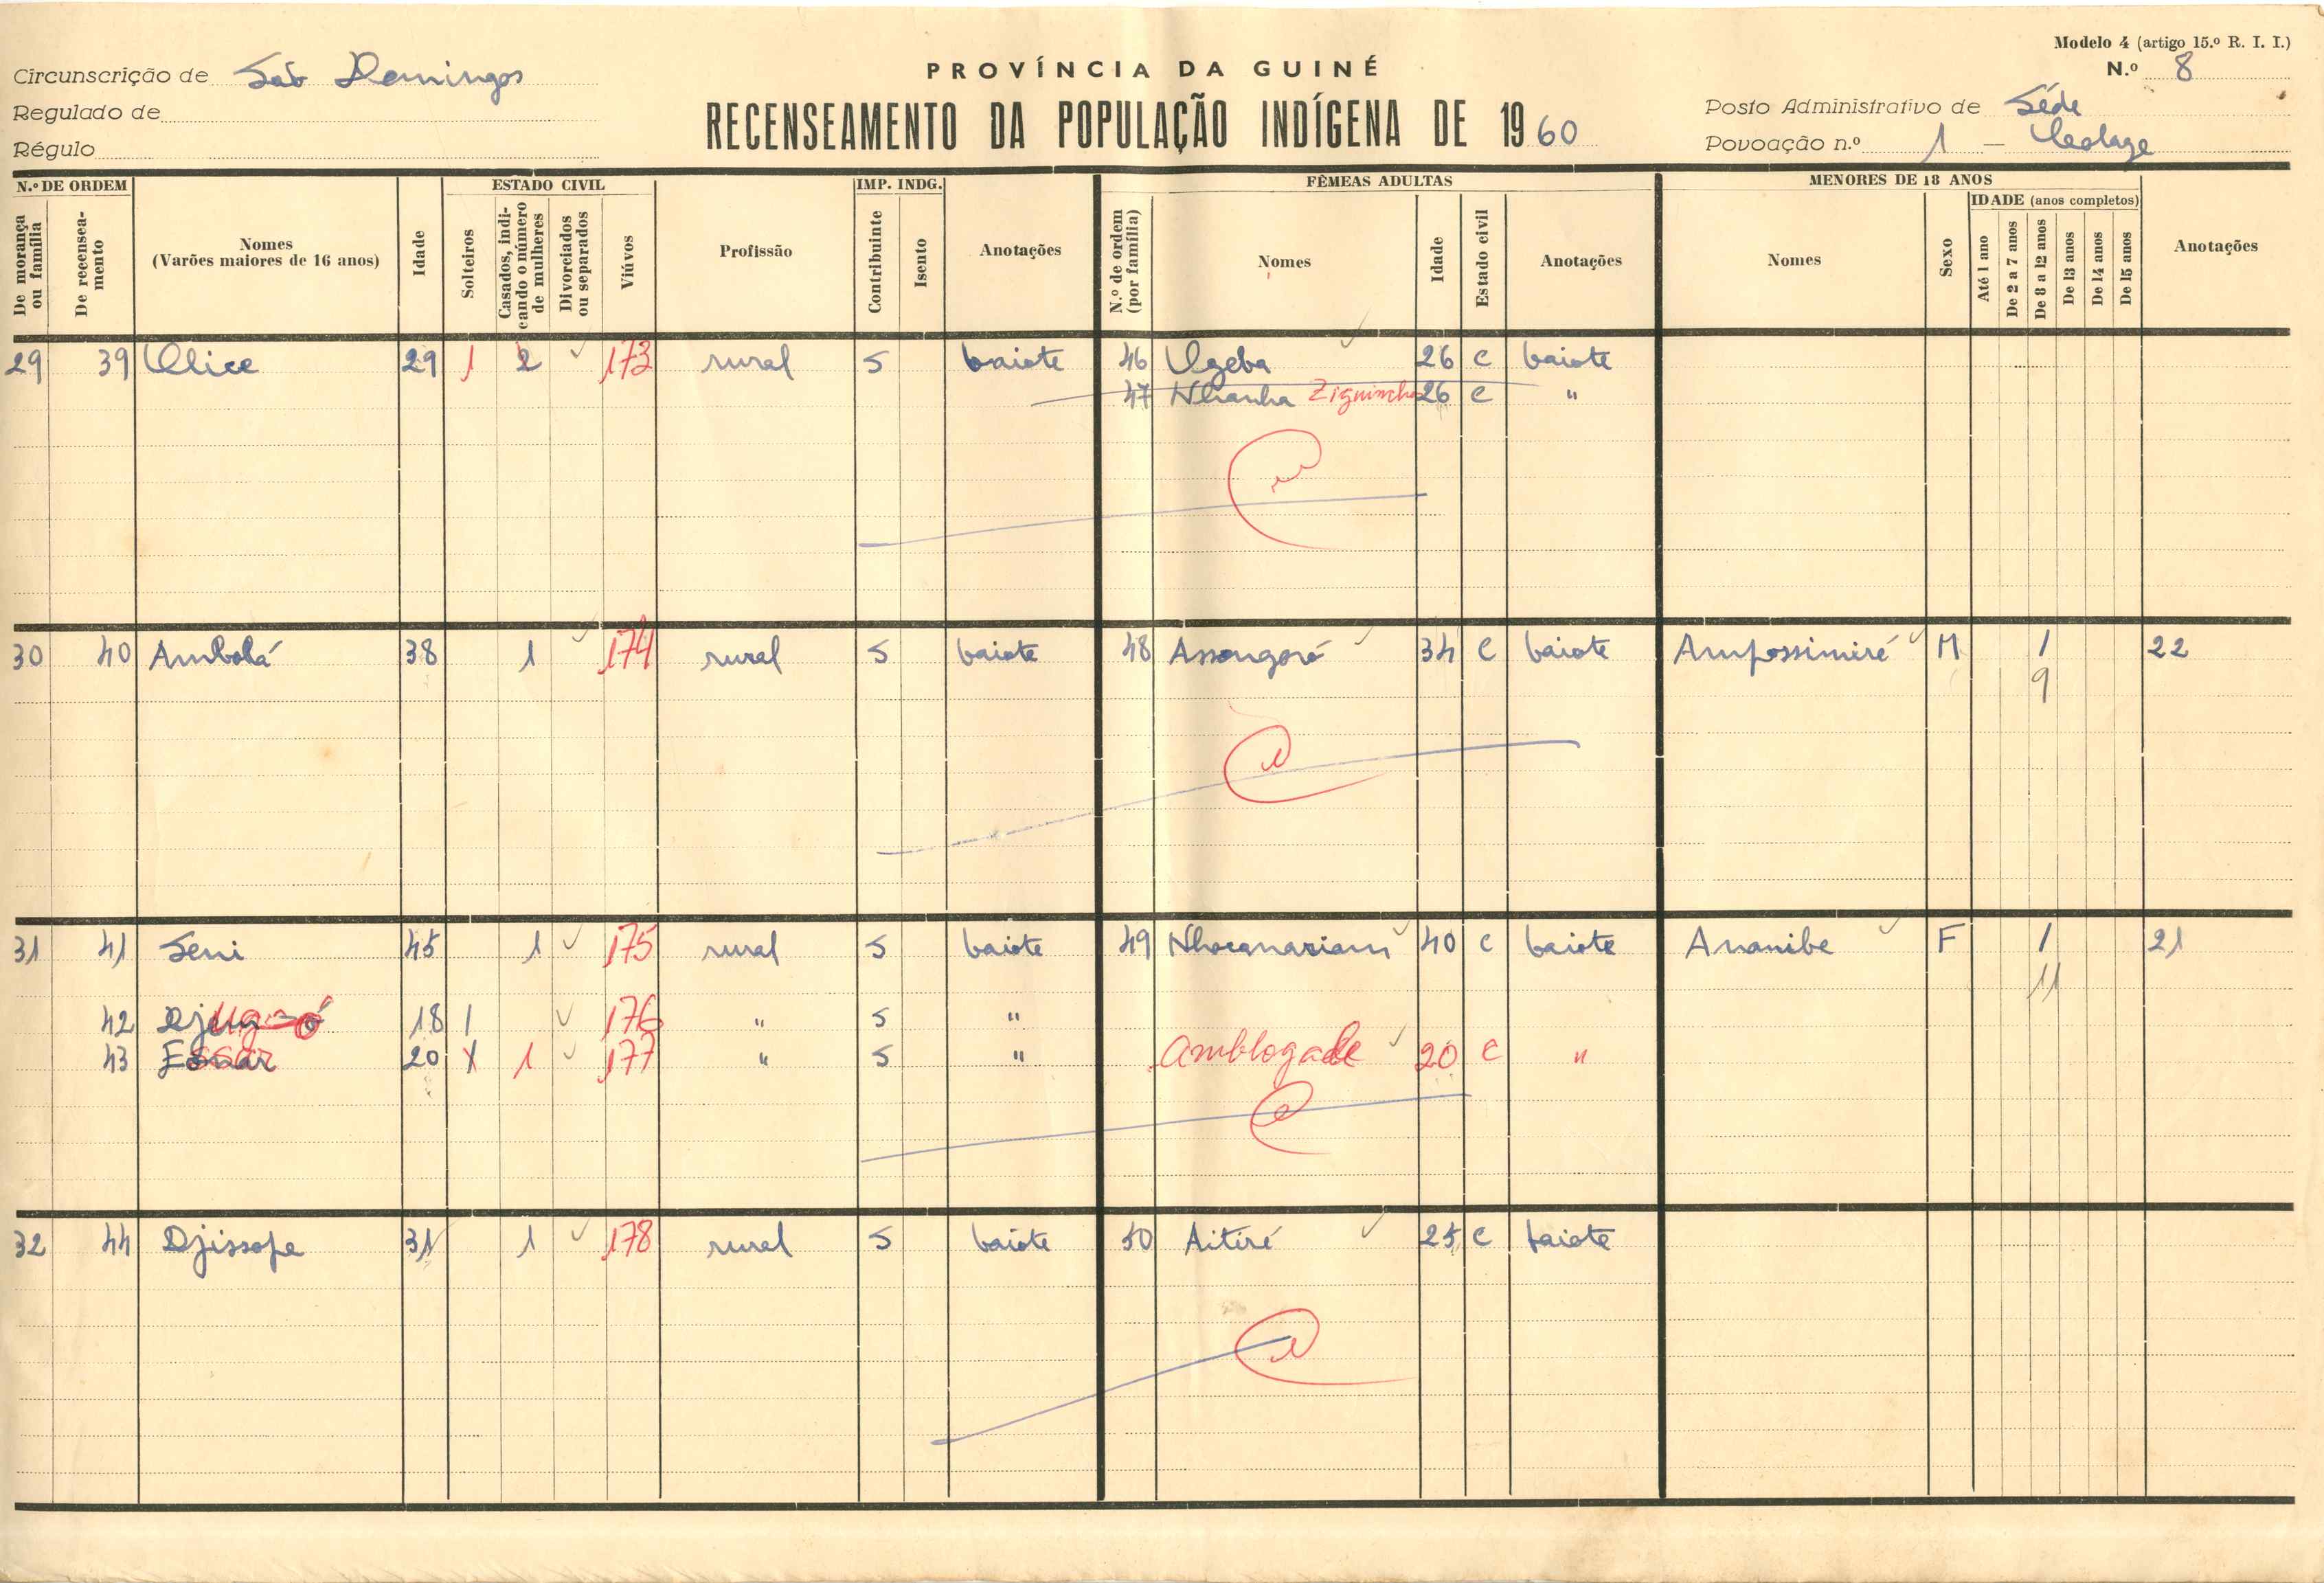 Modelo 4 (artigo 15.º R. I. I.)
N.º 8
Circunscrição de São Domingos
PROVÍNCIA DA GUINÉ
Regulado de
RECENSEAMENTO DA POPULAÇÃO INDÍGENA DE 1960
Posto Administrativo de Séde
Régulo
Povoação n.º 1 –
N.º DE ORDEM
De morança ou família
De recenseamento
Nomes
(Varões maiores de 16 anos)
Idade
ESTADO CIVIL
Solteiros
Casados, indicando o número de mulheres
Divorciados ou separados
Viúvos
Profissão
IMP. INDG.
Contribuinte
Isento
Anotações
FÊMEAS ADULTAS
N.º de ordem (por família)
Nomes
Idade
Estado civil
Anotações
MENORES DE 18 ANOS
Nomes
Sexo
IDADE (anos completos)
Até 1 ano
De 2 a 7 anos
De 8 a 12 anos
De 13 anos
De 14 anos
De 15 anos
Anotações
29 39 29 1 2 173 rural S baiote 46 Ugeba 26 C baiote
47 Nhanha 26 C "
30 40 Ambolá 38 1 174 rural S baiote 48 Assongoré 34 C baiote Ampossimiré M 1 22
9
31 41 Seni 45 1 175 rural S baiote 49 40 C baiote Ananibe F 1 21
11
42 18 1 176 " S "
43 20 1 177 " S " Amblogade 20 C "
32 44 Djissope 31 1 178 rural S baiote 50 Aitiré 25 C baiote